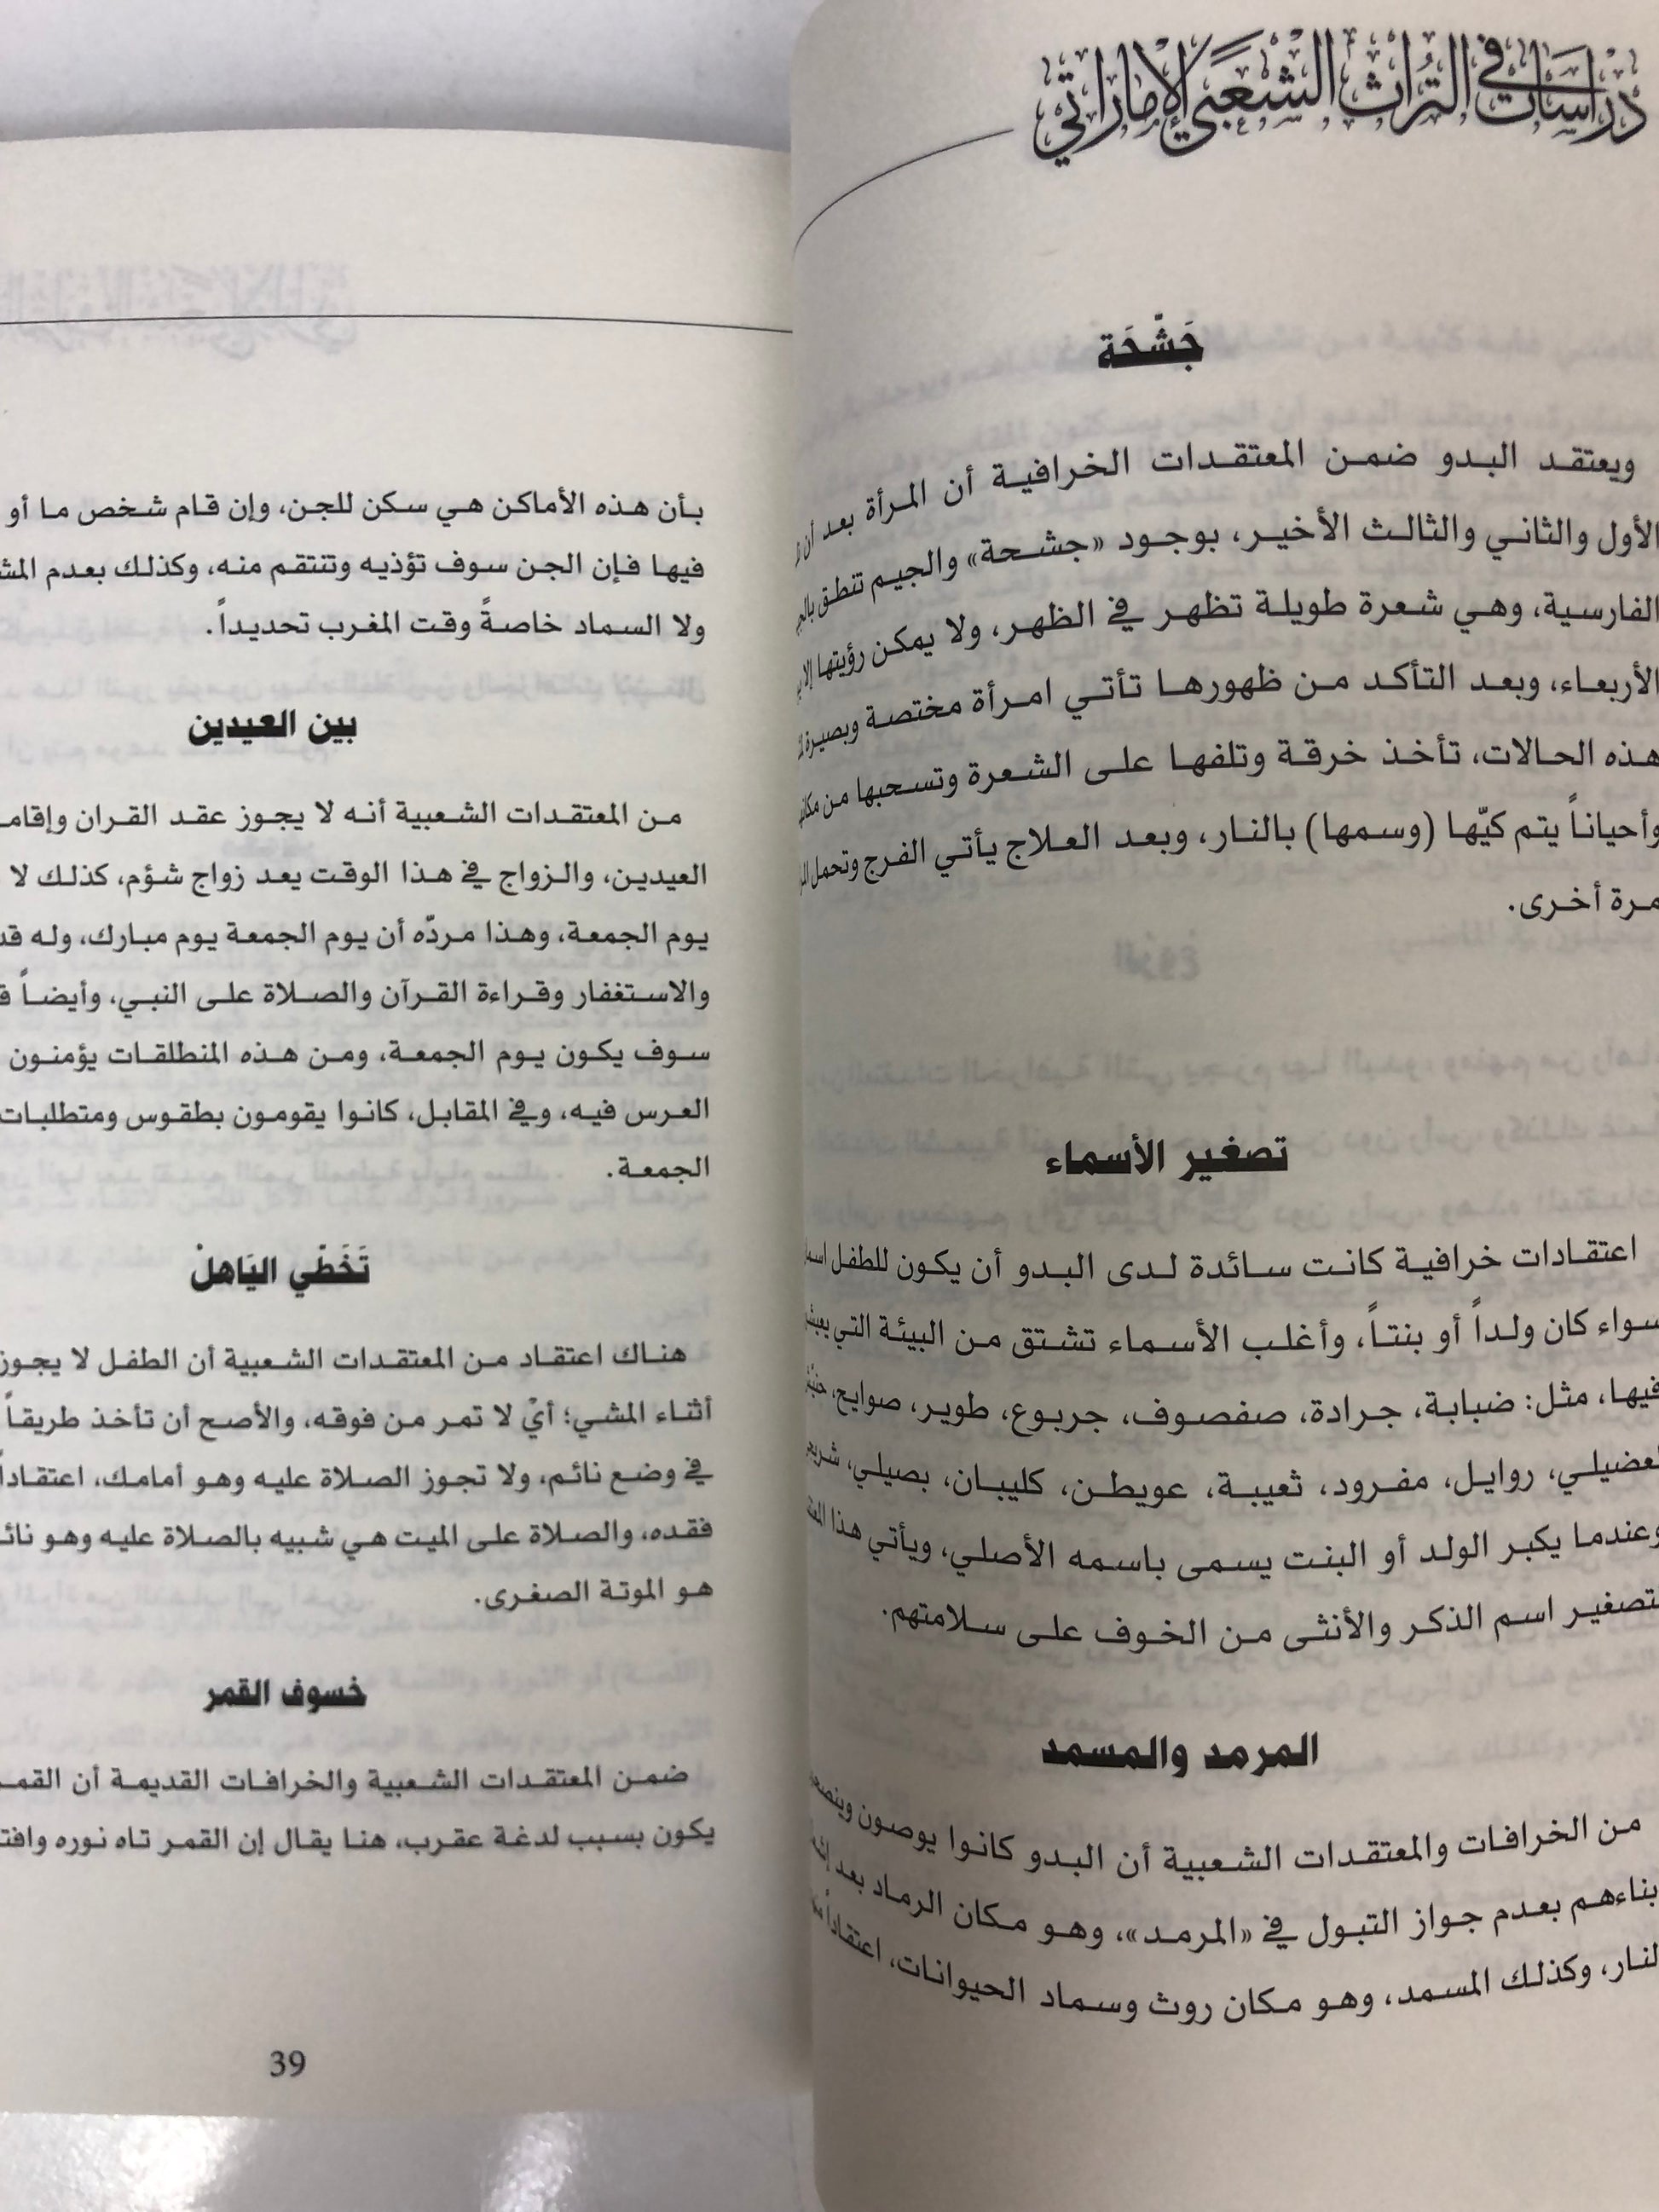 دراسات في التراث الشعبي الإماراتي
جَشْحَة
ويعتقد البدو ضمن المعتقدات الخرافية أن المرأة بعد أن
الأول والثاني والثالث الأخير، بوجود «جشحة» والجيم تنطق
الفارسية، وهي شعرة طويلة تظهر في الظهر، ولا يمكن رؤيتها إلا
الأربعاء، وبعد التأكد من ظهورها تأتي امرأة مختصة وبصيرة
هذه الحالات، تأخذ خرقة وتلفها على الشعرة وتسحبها من مكانها
وأحياناً يتم كيّها (وسمها) بالنار، وبعد العلاج يأتي الفرج وتحمل
مرة أخرى.
تصغير الأسماء
اعتقادات خرافية كانت سائدة لدى البدو أن يكون للطفل
سواء كان ولداً أو بنتاً، وأغلب الأسماء تشتق من البيئة التي
فيها، مثل: ضبابة، جرادة، صفصوف، جربوع، طوير، صوايح،
لعضيلي، روايل، مفرود، ثعيبة، عويطن، كليبان، بصيلي،
وعندما يكبر الولد أو البنت يسمى باسمه الأصلي، ويأتي هذا
تصغير اسم الذكر والأنثى من الخوف على سلامتهم.
المرمد والمسمد
من الخرافات والمعتقدات الشعبية أن البدو كانوا يوصون
بناءهم بعدم جواز التبول في «المرمد»، وهو مكان الرماد بعد
لنار، وكذلك المسمد، وهو مكان روث وسماد الحيوانات، اعتقاداً
بأن هذه الأماكن هي سكن للجن، وإن قام شخص ما أو
فيها فإن الجن سوف تؤذيه وتنتقم منه، وكذلك بعدم
ولا السماد خاصةً وقت المغرب تحديداً.
بين العيدين
من المعتقدات الشعبية أنه لا يجوز عقد القران
العيدين، والزواج في هذا الوقت يعد زواج شؤم، كذلك لا
يوم الجمعة، وهذا مردّه أن يوم الجمعة يوم مبارك، وله
والاستغفار وقراءة القرآن والصلاة على النبي، وأيضاً
سوف يكون يوم الجمعة، ومن هذه المنطلقات يؤمنون
العرس فيه، وفي المقابل، كانوا يقومون بطقوس ومتطلبات
الجمعة.
تَخَطّي اليَاهلْ
هناك اعتقاد من المعتقدات الشعبية أن الطفل لا يجوز
أثناء المشي؛ أيْ لا تمر من فوقه، والأصح أن تأخذ طريقاً
في وضع نائم، ولا تجوز الصلاة عليه وهو أمامك، اعتقاداً
فقده، والصلاة على الميت هي شبيه بالصلاة عليه وهو
هو الموتة الصغرى.
خسوف القمر
ضمن المعتقدات الشعبية والخرافات القديمة أن القمر
يكون بسبب لدغة عقرب، هنا يقال إن القمر تاه نوره
39